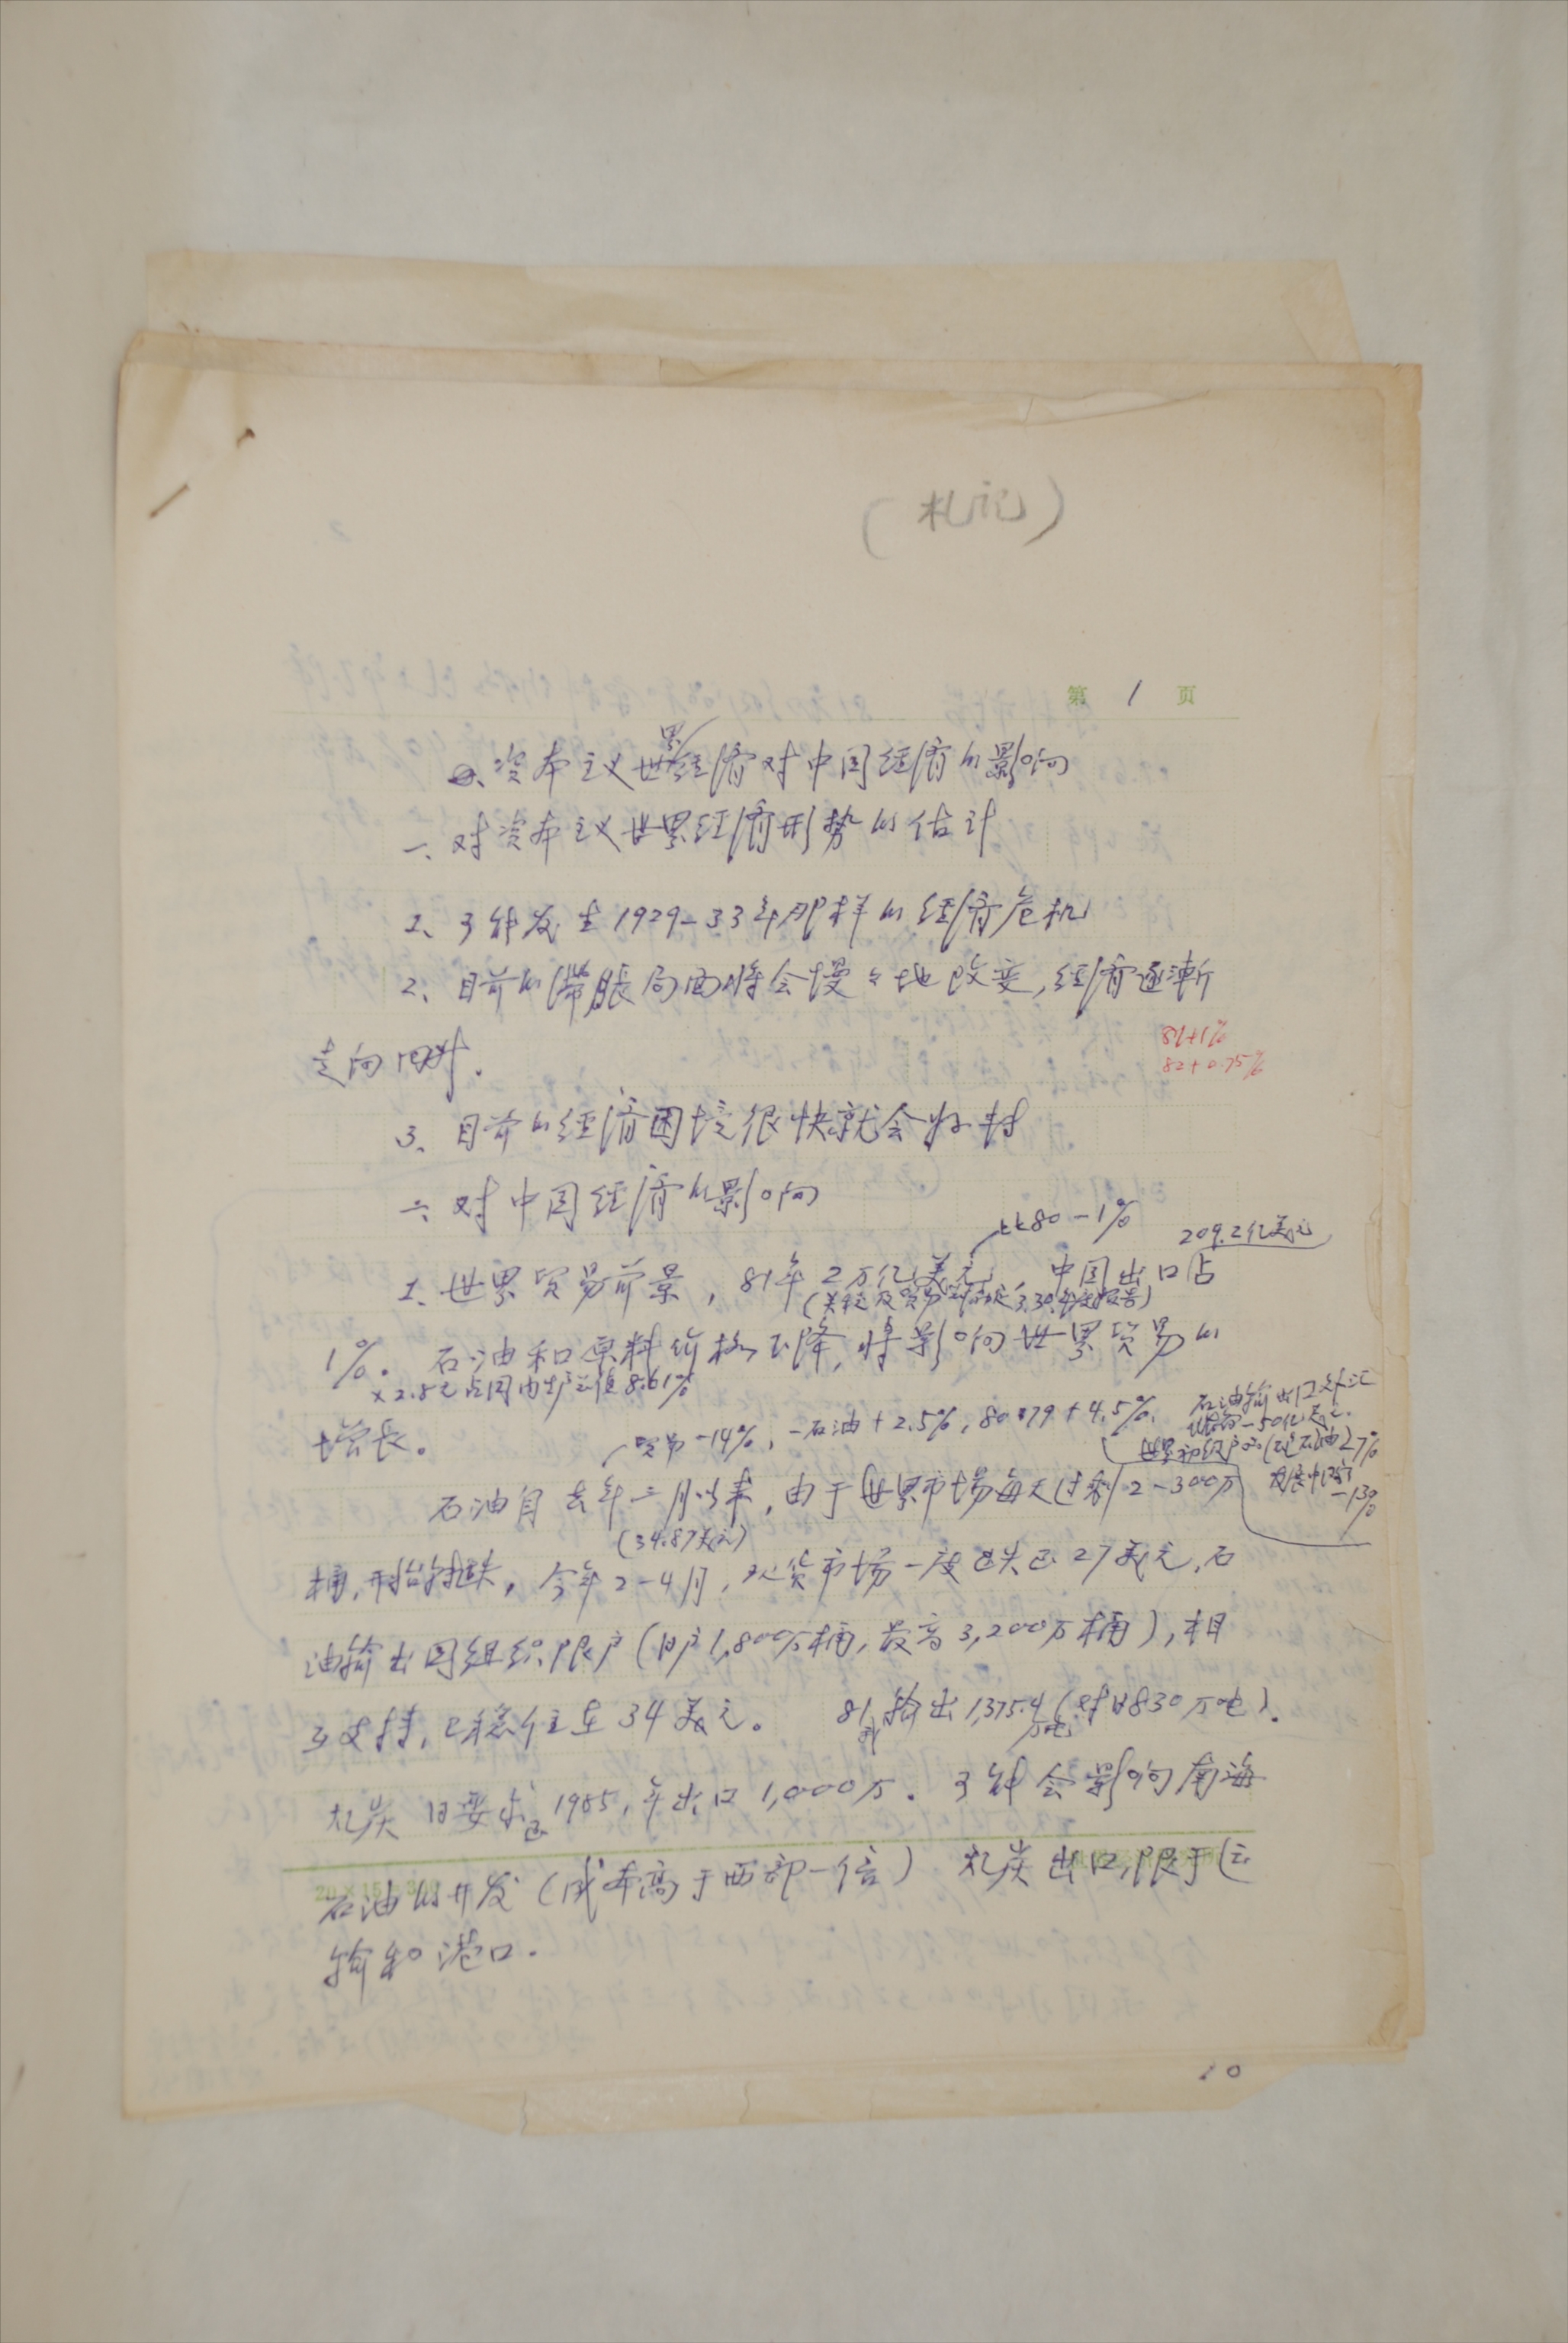 (札记)
第 1 页
资本主义世界经济对中国经济的影响
一、对资本主义世界经济形势的估计
1、可能发生1929-33年那样的经济危机
2、目前的滞胀局面将会慢々地改变,经济逐渐
走向回升.
81+1%
82+0.75%
3、目前的经济困境很快就会好转
二、对中国经济的影响
比80-1%
209.2亿美元
1、世界贸易前景,81年2万亿美元,中国出口占
(关税及贸易 3.30年度报告)
1%。石油和原料价格下降,将影响世界贸易的
×2.8元占国内生产总值8.61%
增长。
贸易-14%,-石油+2.5%,80比79+4.5%.
石油输出口外汇
储备-50亿美元.
世界初级产品(除石油)27%
发展中国家
-13%
石油自去年二月以来,由于世界市场每天过剩2-300万
(34.87美元)
桶,开始转跌,今年2-4月,现货市场一度跌至27美元,石
油输出国组织限产(日产1,800万桶,最高3,200万桶),相
互支持,已稳住在34美元。 81年输出1,375.4万吨(对日830万吨).
煤炭 日要求至1985,年出口1,000万. 可能会影响南海
石油的开发(成本高于西部一倍) 煤炭出口,限于运
输和港口.
10